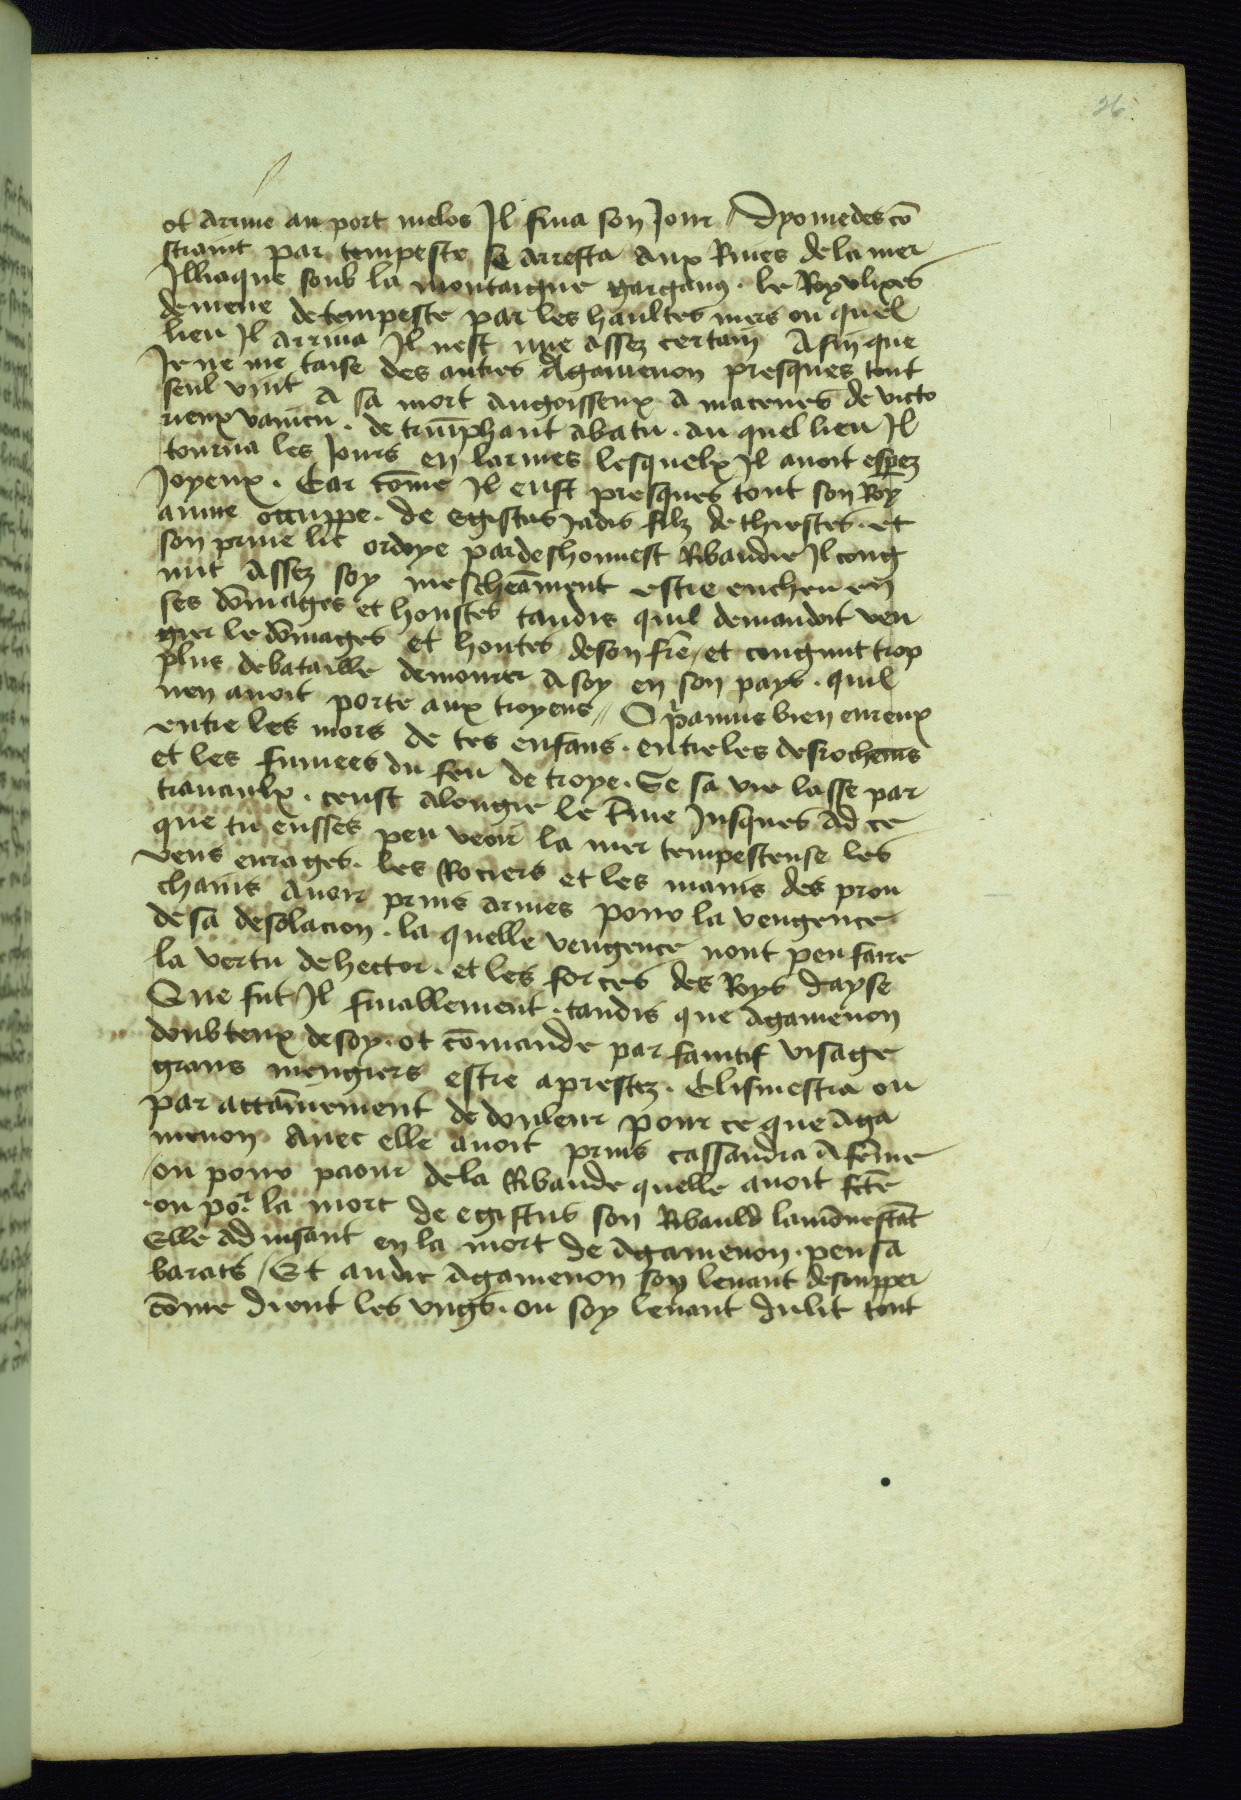 26.
ot arrive au port melos Il fina son Jour // Dyomedes cō
straint par tempeste se arresta aux Rives de la mer
Illiaque soub la montaigne garganus . le Roy vlixes
demene de tempeste par les haultes mers ou quel
lieu Il arriva Il nest mie assez certain Afin que
Je ne me taise des autres Agamenon presques tout
seul vint A sa mort angoisseux a macenes de victo
rieux vaincu . de triūphant abatu . au quel lieu Il
tourna les Jours en larmes lesquelx Il avoit esperz
Joyeux . Car cōme Il eust presques tout son Roy
aume occuppe . de egistus jadis filz de thiestes . et
son prive lit ordoye par deshonnest Ribaudie Il cong
nut Assez soy mescheāment estre encheu en
ses dōmages et honstes tandis quil demandoit ven
gier le dōmages et hontes de son frē / et congnut trop
plus de bataille demourer a soy en son pays . quil
nen avoit porte aux troyens // O pamus bien eureux
entre les mors de tes enfans . entre les desrochemēs
et les fumees du feu de troye . Se sa vie lasse par
travaulx . ceust alongie le tme Jusques ad ce
que tu eusses peu veoir la mer tempesteuse les
vens enrages . les Rociers et les mains des prou
chains avoir prins armes pour la vengence
de sa desolacion . la quelle vengence nont peu faire
la vertu de hector . et les forces des Roys dayse
Que fut Il finallement . tandis que Agamenon
doubteux de soy . ot cōmande par faintif visage
grans mengiers estre aprestez . Clismestra ou
par attāmement de douleur pour ce que Aga
menon avec elle avoit prins cassandra A fēme
/ou pour paour de la Ribaude quelle avoit fcte
ou por la mort de egistus son Ribauld lamōnestāt
Elle advisant en la mort de Agamenon . pensa
barats / Et audit Agamenon soy levant de soupper
cōme dient les vngs . ou soy levant du lit tout